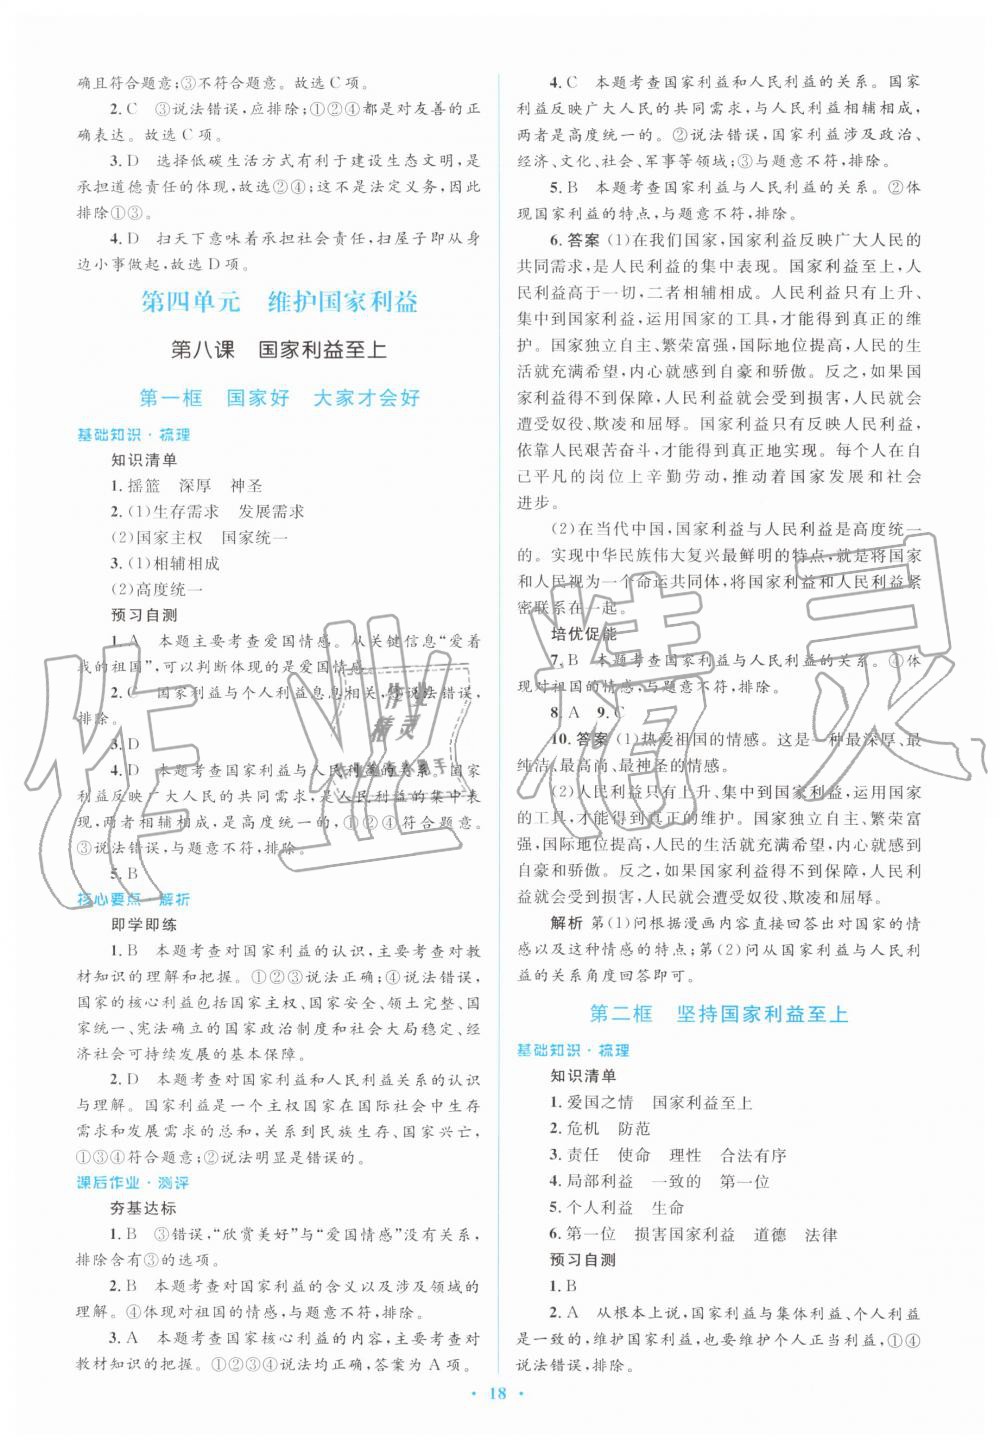 确且符合题意;③不符合题意。故选C项。
2. C ③说法错误,应排除;①②④都是对友善的正
确表达。故选C项。
3. D 选择低碳生活方式有利于建设生态文明,是
承担道德责任的体现,故选②④;这不是法定义务,因此
排除①③。
4. D 扫天下意味着承担社会责任,扫屋子即从身
边小事做起,故选D项。
第四单元 维护国家利益
第八课 国家利益至上
第一框 国家好 大家才会好
基础知识·梳理
知识清单
1. 摇篮 深厚 神圣
2. (1)生存需求 发展需求
(2)国家主权 国家统一
3. (1)相辅相成
(2)高度统一
预习自测
1. A 本题主要考查爱国情感。从关键信息“爱着
我的祖国”,可以判断体现的是爱国情感。
2. C 国家利益与个人利益息息相关,④说法错误,
排除。
3. D
4. D 本题考查国家利益与人民利益的关系。国家
利益反映广大人民的共同需求,是人民利益的集中表
现,两者相辅相成,是高度统一的,①②④符合题意。
③说法错误,与题意不符,排除。
5. B
核心要点·解析
即学即练
1. B 本题考查对国家利益的认识,主要考查对教
材知识的理解和把握。①②③说法正确;④说法错误,
国家的核心利益包括国家主权、国家安全、领土完整、国
家统一、宪法确立的国家政治制度和社会大局稳定、经
济社会可持续发展的基本保障。
2. D 本题考查对国家利益和人民利益关系的认识
与理解。国家利益是一个主权国家在国际社会中生存
需求和发展需求的总和,关系到民族生存、国家兴亡,
①③④符合题意;②说法明显是错误的。
课后作业·测评
夯基达标
1. B ③错误,“欣赏美好”与“爱国情感”没有关系,
排除含有③的选项。
2. B 本题考查对国家利益的含义以及涉及领域的
理解。④体现对祖国的情感,与题意不符,排除。
3. A 本题考查国家核心利益的内容,主要考查对
教材知识的把握。①②③④说法均正确,答案为A项。
4. C 本题考查国家利益和人民利益的关系。国家
利益反映广大人民的共同需求,与人民利益相辅相成,
两者是高度统一的。②说法错误,国家利益涉及政治、
经济、文化、社会、军事等领域;③与题意不符,排除。
5. B 本题考查国家利益与人民利益的关系。②体
现国家利益的特点,与题意不符,排除。
6. 答案 (1)在我们国家,国家利益反映广大人民的
共同需求,是人民利益的集中表现。国家利益至上,人
民利益高于一切,二者相辅相成。人民利益只有上升、
集中到国家利益,运用国家的工具,才能得到真正的维
护。国家独立自主、繁荣富强,国际地位提高,人民的生
活就充满希望,内心就会感到自豪和骄傲。反之,如果
国家利益得不到保障,人民利益就会受到损害,人民就会
遭受奴役、欺凌和屈辱。国家利益只有反映人民利益,
依靠人民艰苦奋斗,才能得到真正地实现。每个人在自
己平凡的岗位上辛勤劳动,推动着国家发展和社会
进步。
(2)在当代中国,国家利益与人民利益是高度统一
的。实现中华民族伟大复兴最鲜明的特点,就是将国家
和人民视为一个命运共同体,将国家利益和人民利益紧
密联系在一起。
培优促能
7. B 本题考查国家利益与人民利益的关系。④体
现对祖国的情感,与题意不符,排除。
8. A 9. C
10. 答案 (1)热爱祖国的情感。这是一种最深厚、最
纯洁、最高尚、最神圣的情感。
(2)人民利益只有上升、集中到国家利益,运用国家
的工具,才能得到真正的维护。国家独立自主、繁荣富
强,国际地位提高,人民的生活就充满希望,内心就会感到
自豪和骄傲。反之,如果国家利益得不到保障,人民利益
就会受到损害,人民就会遭受奴役、欺凌和屈辱。
解析 第(1)问根据漫画内容直接回答出对国家的情
感以及这种情感的特点;第(2)问从国家利益与人民利
益的关系角度回答即可。
第二框 坚持国家利益至上
基础知识·梳理
知识清单
1. 爱国之情 国家利益至上
2. 危机 防范
3. 责任 使命 理性 合法有序
4. 局部利益 一致的 第一位
5. 个人利益 生命
6. 第一位 损害国家利益 道德 法律
预习自测
1. B
2. A 从根本上说,国家利益与集体利益、个人利益
是一致的,维护国家利益,也要维护个人正当利益,①④
说法错误,排除。
· 18 ·
作业精灵
作业
精灵